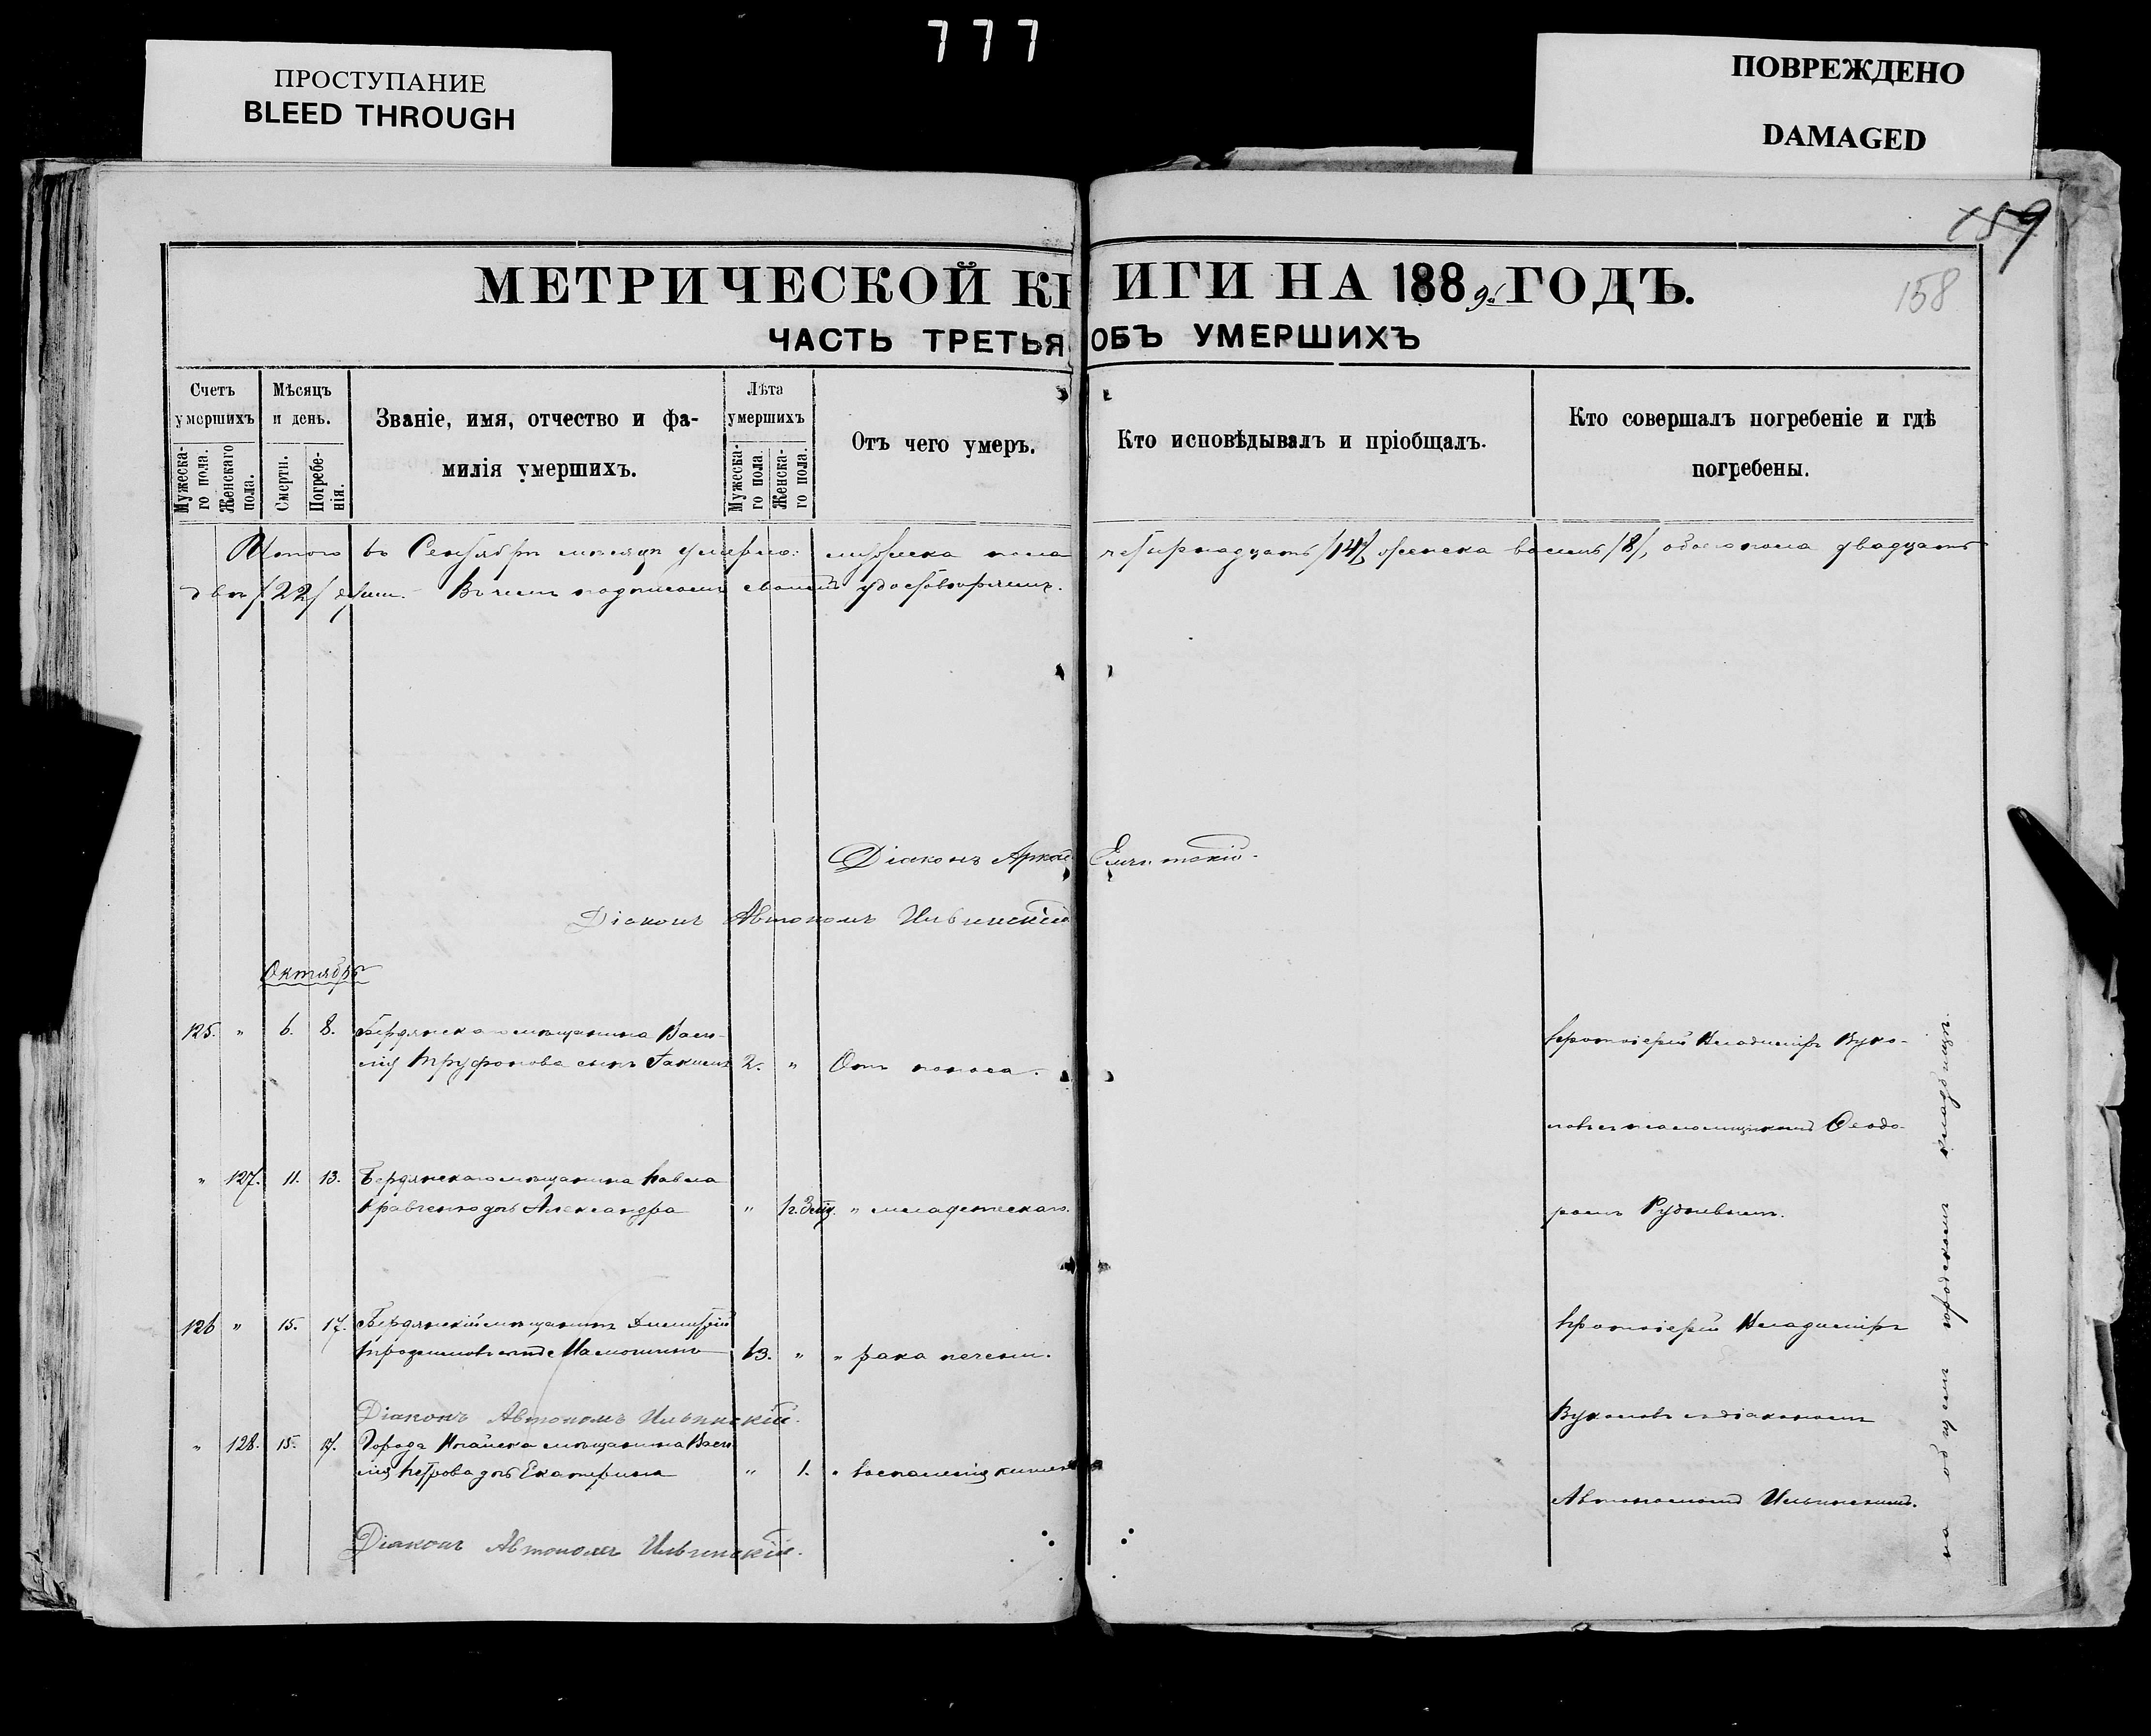 777
ПРОСТУПАНИЕ
BLEED THROUGH
ПОВРЕЖДЕНО
DAMAGED
159
158
МЕТРИЧЕСКОЙ КНИГИ НА 1889й ГОДЪ.
ЧАСТЬ ТРЕТЬЯ ОБЪ УМЕРШИХЪ
Счетъ умершихъ
Мужеска-го пола.
Женскаго пола.
Мѣсяцъ и день.
Смерти.
Погребе-нія.
Званіе, имя, отчество и фа-
милія умершихъ.
Лѣта умершихъ
Мужеска-го пола.
Женска-го пола.
Отъ чего умеръ.
Кто исповѣдывалъ и пріобщалъ.
Кто совершалъ погребеніе и гдѣ
погребены.
Итого въ Сентябрѣ мѣсяцѣ умерло: мужеска пола четырнадцать /14/ женска восемь /8/, обоего пола двадцать
двѣ /22/ души. Въ чемъ подписомъ своимъ удостовѣряемъ.
Діаконъ Аркад
Діаконъ Автономъ Ильинскій
Октябрь
125. " 6. 8. Бердянскаго мѣщанина Васи-
лія Труфонова сынъ 2. " Отъ поноса.
Протоіерей Владиміръ Вуко-
ловъ съ псаломщикомъ Ѳеодо-
ромъ
" 127. 11. 13. Бердянскаго мѣщанина Павла
Кравченко дочь Александра " " младенческаго.
126 " 15. 17. Бердянскій мѣщанинъ Димитрій
63. " " рака печени.
Протоіерей Владиміръ
Вуколовъ съ діакономъ
Автономомъ Ильинскимъ.
Діаконъ Автономъ Ильинскій.
" 128. 15. 17. Города Ногайска мѣщанина Васи-
лія Петрова дочь Екатерина " 1. " воспаленія кишек
Діаконъ Автономъ Ильинскій.
на общемъ городскомъ кладбищѣ.